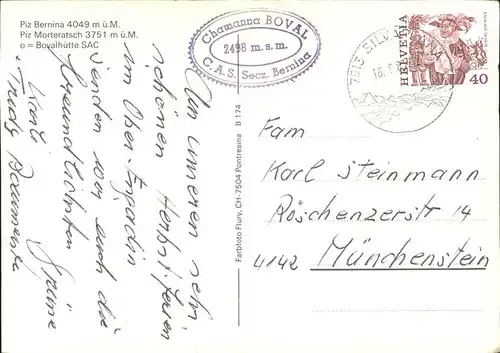 Piz Bernina 4049 m ü.M.
Piz Morteratsch 3751 m ü.M.
o = Bovalhütte SAC
Chamanna BOVAL
2498 m.s.m.
C.A.S. Secz. Bernina
7513 SILV
HELVETIA
40
unseren sehr
schönen Herbstferien
im Ober-Engadin
senden wir euch die
freundlichsten Grüsse
Trudy
Farbfoto Flury, CH-7504 Pontresina B 174
Fam.
Karl Steinmann
Röschenzerstr 14
4142 Münchenstein